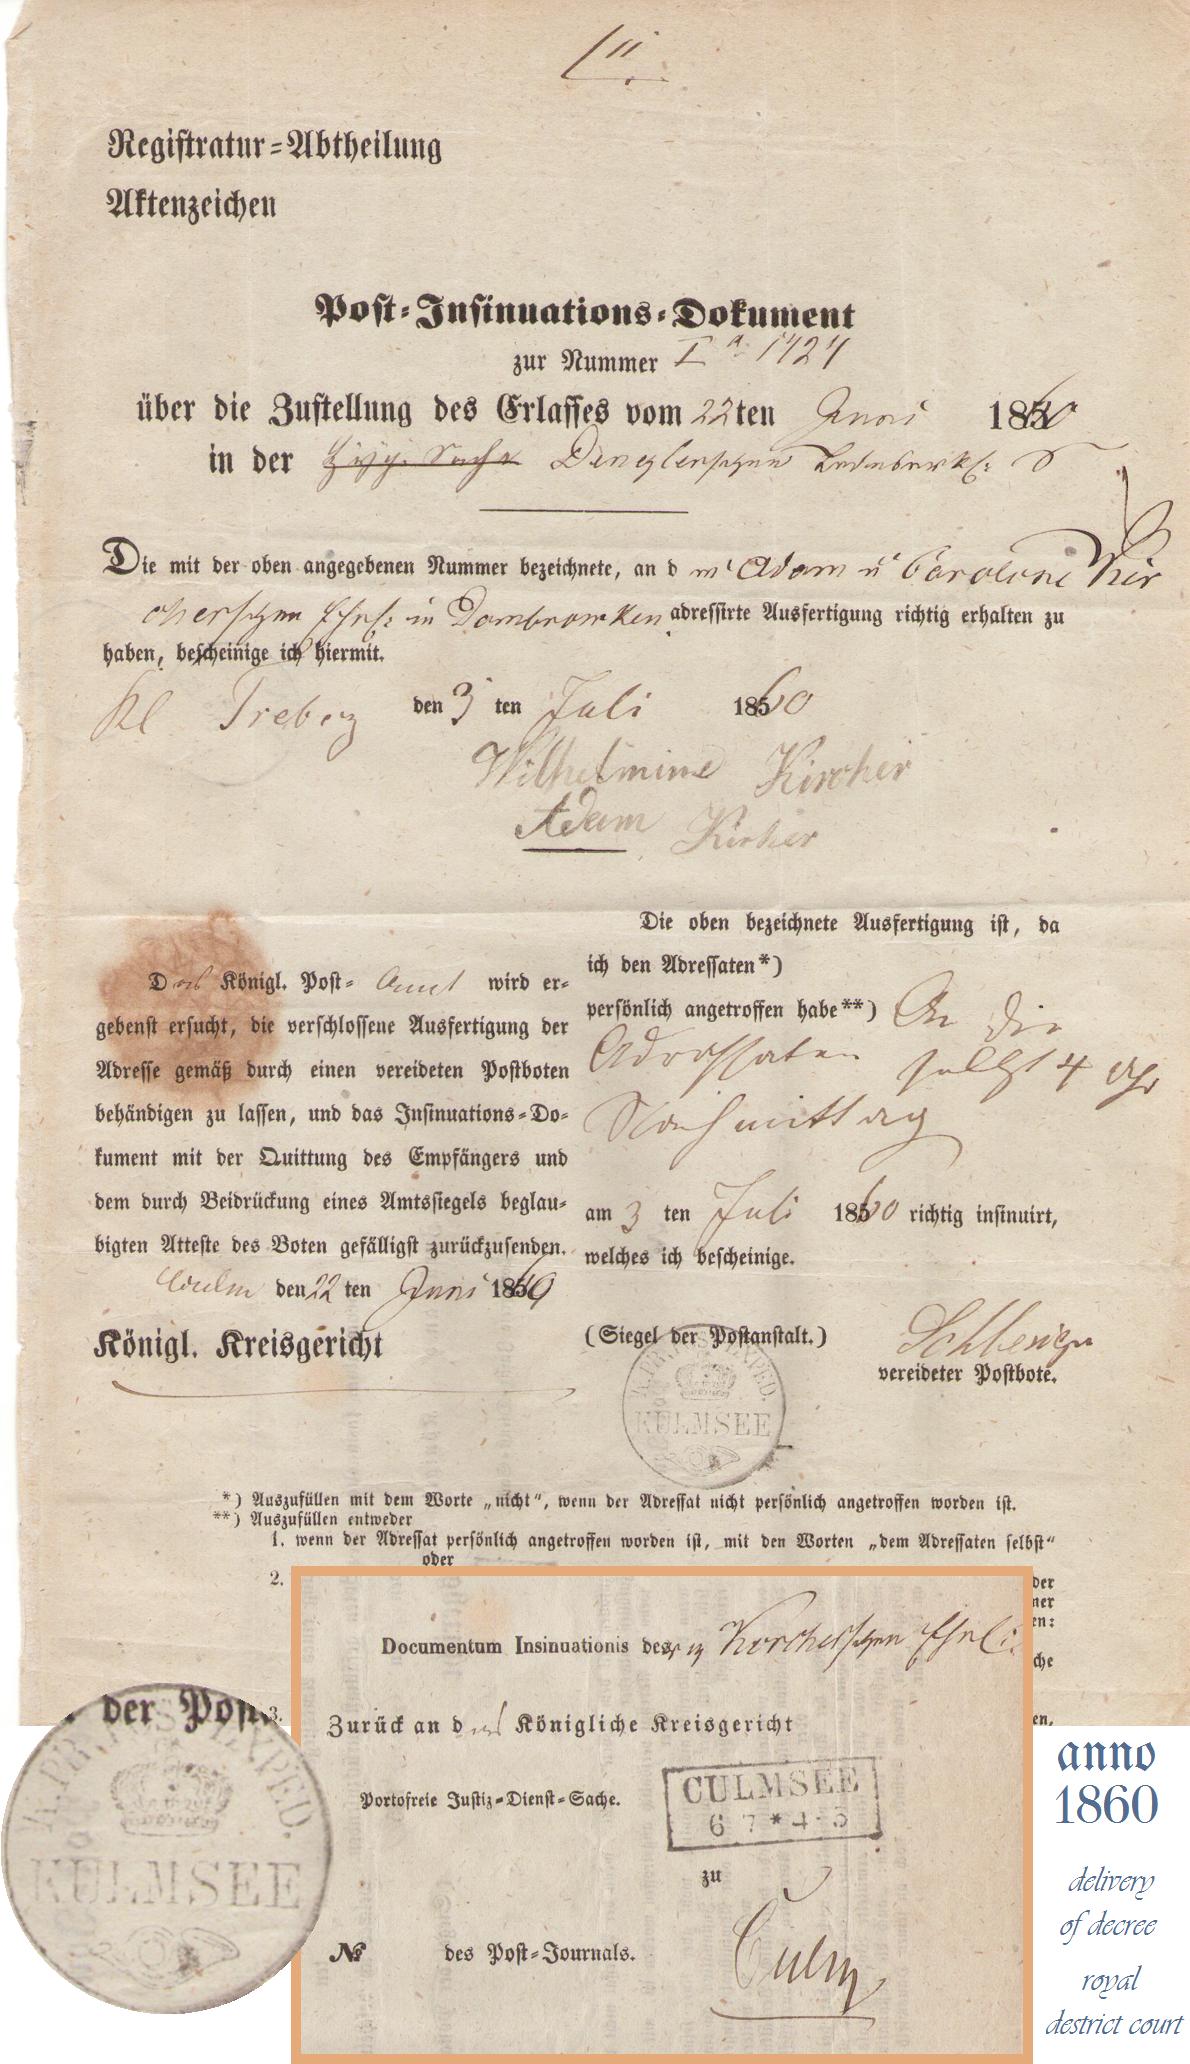 Registratur=Abtheilung
Aktenzeichen
Post=Insinuations=Dokument
zur Nummer I a 1424
über die Zustellung des Erlasses vom 22ten Juni 1860
in der
Die mit der oben angegebenen Nummer bezeichnete, an d Adam u Caroline Kir
cherschen in Dombrowken adressirte Ausfertigung richtig erhalten zu
haben, bescheinige ich hiermit.
Kl Trebcz den 3 ten Juli 1860
Wilhelmine Kircher
Adam Kircher
Das Königl. Post= Amt wird er=
gebenst ersucht, die verschlossene Ausfertigung der
Adresse gemäß durch einen vereideten Postboten
behändigen zu lassen, und das Insinuations=Do=
kument mit der Quittung des Empfängers und
dem durch Beidrückung eines Amtssiegels beglau=
bigten Atteste des Boten gefälligst zurückzusenden.
Culm den 22 ten Juni 1860
Königl. Kreisgericht
Die oben bezeichnete Ausfertigung ist, da
ich den Adressaten*)
persönlich angetroffen habe**) An die
Adressaten selbst 4 Uhr
Nachmittag
am 3 ten Juli 1860 richtig insinuirt,
welches ich bescheinige.
(Siegel der Postanstalt.)
vereideter Postbote.
K. PR. POST EXPED.
KULMSEE
*) Auszufüllen mit dem Worte „nicht“, wenn der Adressat nicht persönlich angetroffen worden ist.
**) Auszufüllen entweder
1. wenn der Adressat persönlich angetroffen worden ist, mit den Worten „dem Adressaten selbst“
oder
2.
3.
Documentum Insinuationis der Kircherschen
Zurück an das Königliche Kreisgericht
Portofreie Justiz=Dienst=Sache.
CULMSEE
6 7 * 4-5
zu
Culm
№ des Post=Journals.
der Post
K. PR. POST EXPED.
KULMSEE
anno
1860
delivery
of decree
royal
destrict court